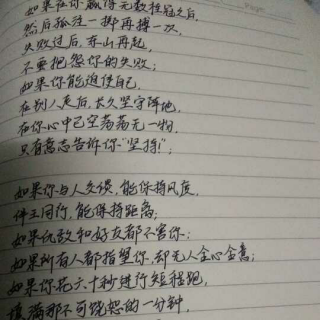 如果在你赢得无数桂冠之后,
然后孤注一掷再搏一次,
失败过后,东山再起,
不要抱怨你的失败;
如果你能迫使自己,
在别人走后,长久坚守阵地,
在你心中已空荡荡无一物,
只有意志告诉你“坚持!”;
如果你与人交谈,能保持风度,
伴王同行,能保持距离;
如果仇敌和好友都不害你;
如果所有人都指望你,却无人全心全意;
如果你花六十秒进行短程跑,
填满那不可饶恕的一分钟,